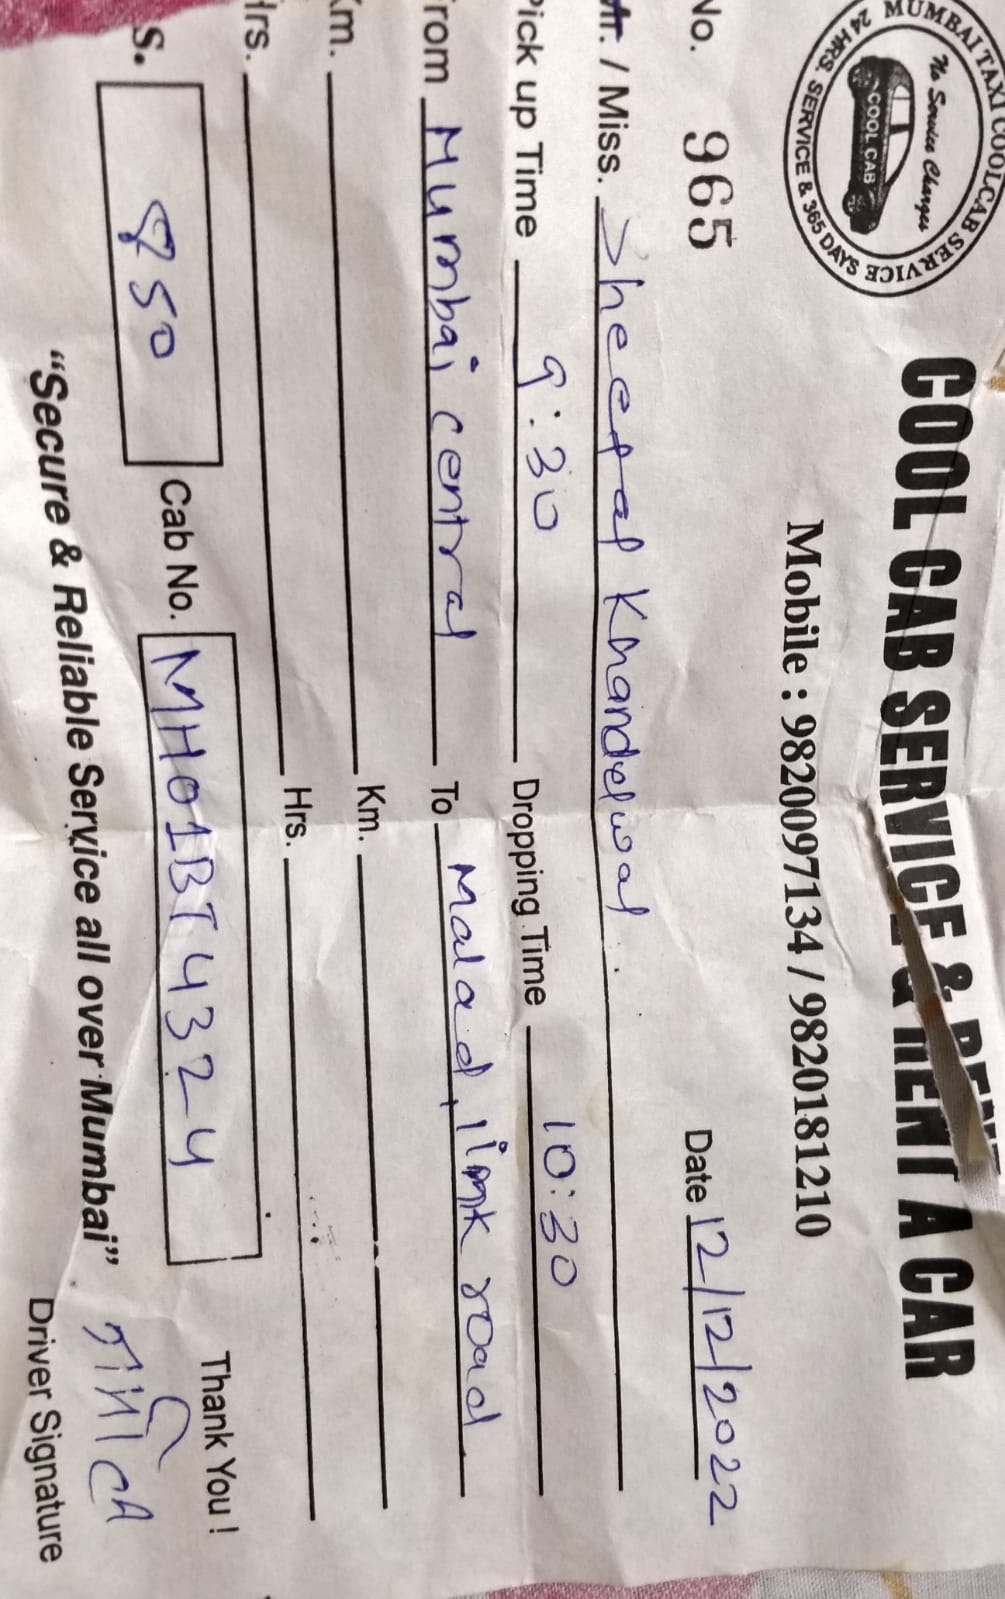 MUMBAI TAXI COOLCAB SERVICE
No Service Charges
COOL CAB
24 HRS. SERVICE & 365 DAYS
COOL CAB SERVICE & RENT A CAR
Mobile : 9820097134 / 9820181210
No. 965 Date 12/12/2022
Mr. / Miss. Sheetal Khandelwal
Pick up Time 9:30 Dropping Time 10:30
From Mumbai central To Malad, link road
Km. Km.
Hrs. Hrs.
s. 850 Cab No. MH01BT4324 Thank You !
"Secure & Reliable Service all over Mumbai" Driver Signature